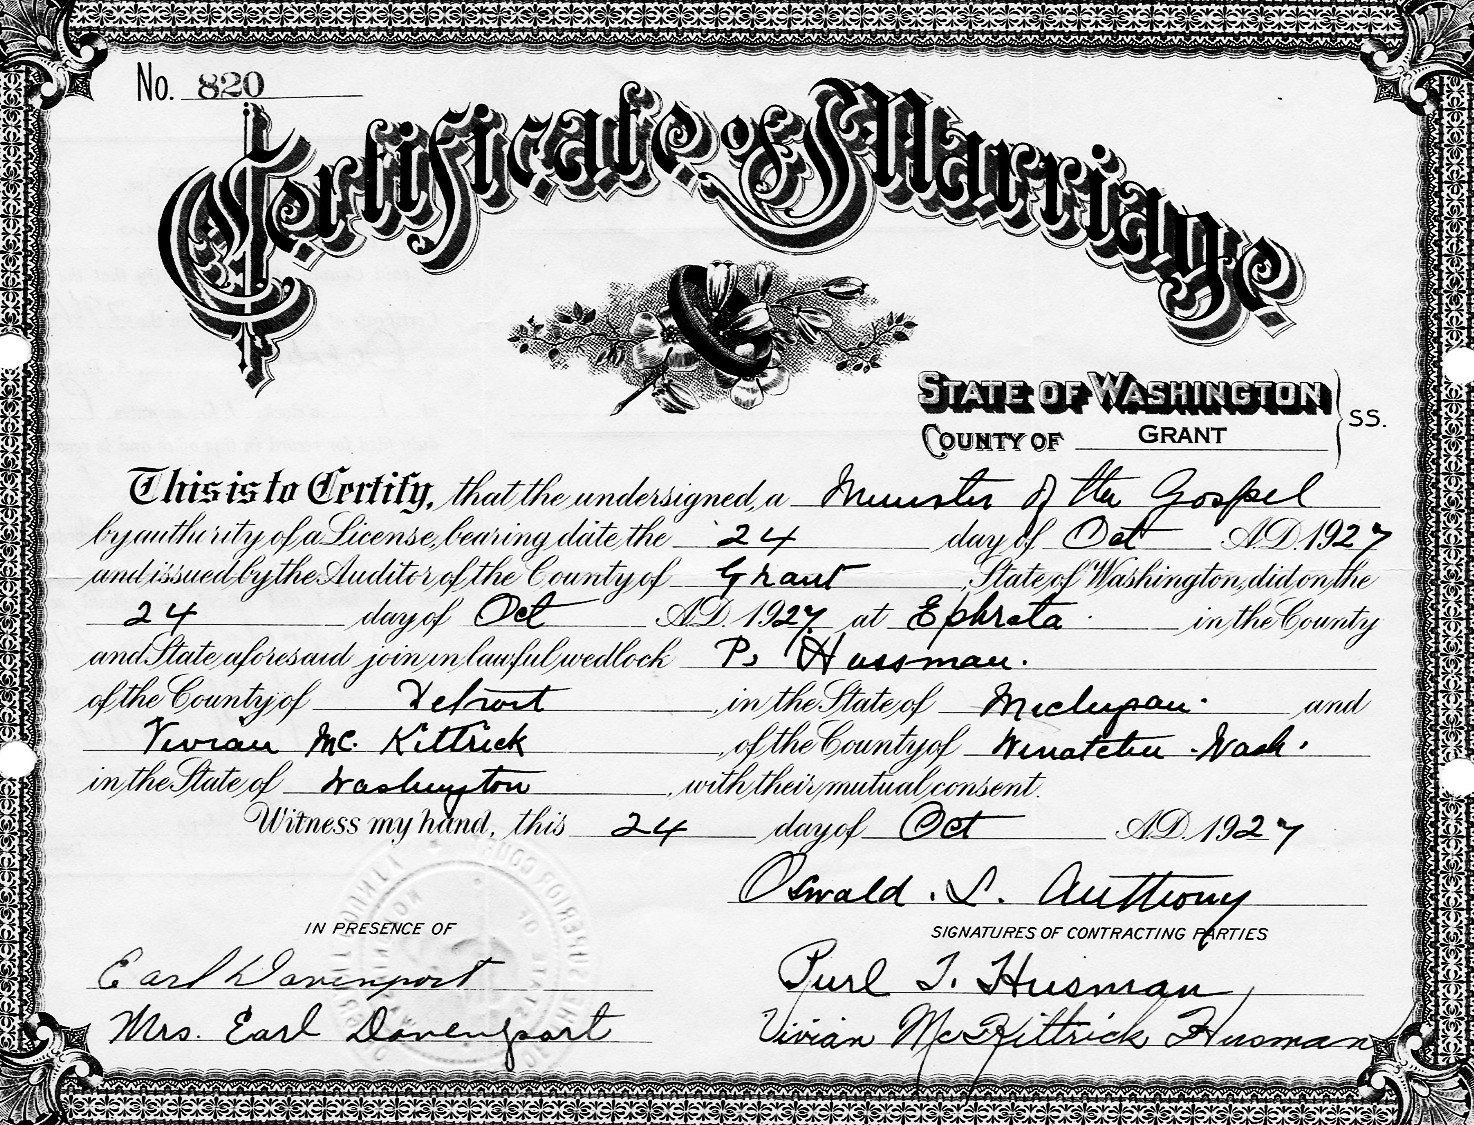 No. 820
Certificate of Marriage
STATE OF WASHINGTON
COUNTY OF GRANT SS.
This is to Certify, that the undersigned, a Minister of the Gospel
by authority of a License, bearing date the 24 day of Oct A.D. 1927
and issued by the Auditor of the County of Grant, State of Washington, did on the
24 day of Oct A.D. 1927 at Ephrata in the County
and State aforesaid join in lawful wedlock P. Hussman.
of the County of Detroit, in the State of Michigan. and
Vivian Mc. Kittrick, of the County of Winatchee Wash.
in the State of Washington, with their mutual consent.
Witness my hand, this 24 day of Oct A.D. 1927
Oswald. L. Anthony
IN PRESENCE OF
SIGNATURES OF CONTRACTING PARTIES
Earl Davenport
Purl T. Husman
Mrs. Earl Davenport
Vivian McKittrick Husman